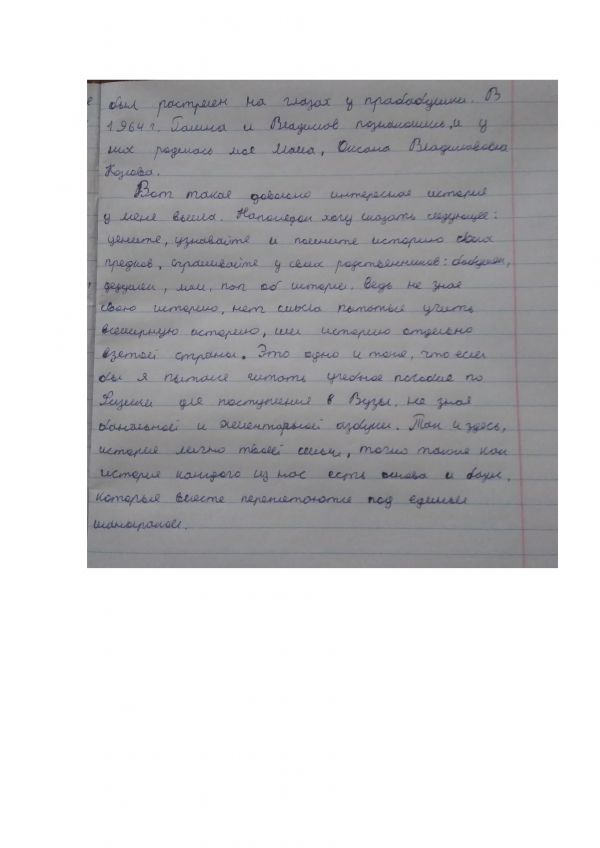 был растрелен на глазах у прабабушки. В
1964 г. Галина и Владимов познакомись, и у
них родилась моя Мама, Оксана Владимировна
Козлова.
Вот такая довольно интересная история
у меня вышла. Напоследок хочу сказать следующее:
цените, узнавайте и помните историю своих
предков, спрашивайте у своих родственников: бабушек,
дедушек, мам, пап об истории. Ведь не зная
свою историю, нет смысла пытаться учить
всемирную историю, или историю отдельно
взятой страны. Это одно и тоже, что если
бы я пытался читать учебное пособие по
Физики для поступления в Вузы, не зная
банальной и элементарной азбуки. Так и здесь,
история лично твоей семьи, точно такая как
история каждого из нас есть основа и базы,
которые вместе переплетаются под единым
шаныраком.